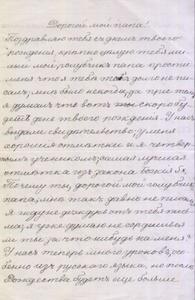 Дорогой мой папа!
Поздравляю тебя съ днемъ твоего
рожденія, крѣпко цѣлую тебя ми-
лый мой голубчикъ папа прости
меня что я тебѣ такъ долго не пи-
салъ, мнѣ было некогда, да при томъ
я думалъ что вотъ скоро бу-
детъ день твоего рожденія. У насъ
выдали свидѣтельство: у меня
хорошія отмѣтки и я четвер-
тымъ ученикомъ, самая лучшая
отмѣтка изъ закона Божія 5.
Почему ты, дорогой мой голубчикъ
папа, мнѣ такъ давно не писалъ
я жду не дождусь отъ тебя пись-
ма, я уже думаю не сердишься
ли ты за что нибудь на меня?
У насъ теперь много уроковъ осо-
бенно изъ русскаго языка, но послѣ
Рождества будетъ еще больше